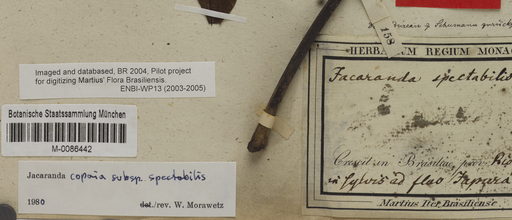 Imaged and databased, BR 2004, Pilot project
for digitizing Martius' Flora Brasiliensis.
ENBI-WP13 (2003-2005)
Botanische Staatssammlung München
M-0086442
Jacaranda copaia subsp. spectabilis
1980 det./rev. W. Morawetz
158
HERBARIUM REGIUM MONAC
Jacaranda spectabilis
Crescit in Brasiliae, prov. Rio
in sylvis ad flav. Japurá
Martius Iter Brasiliense